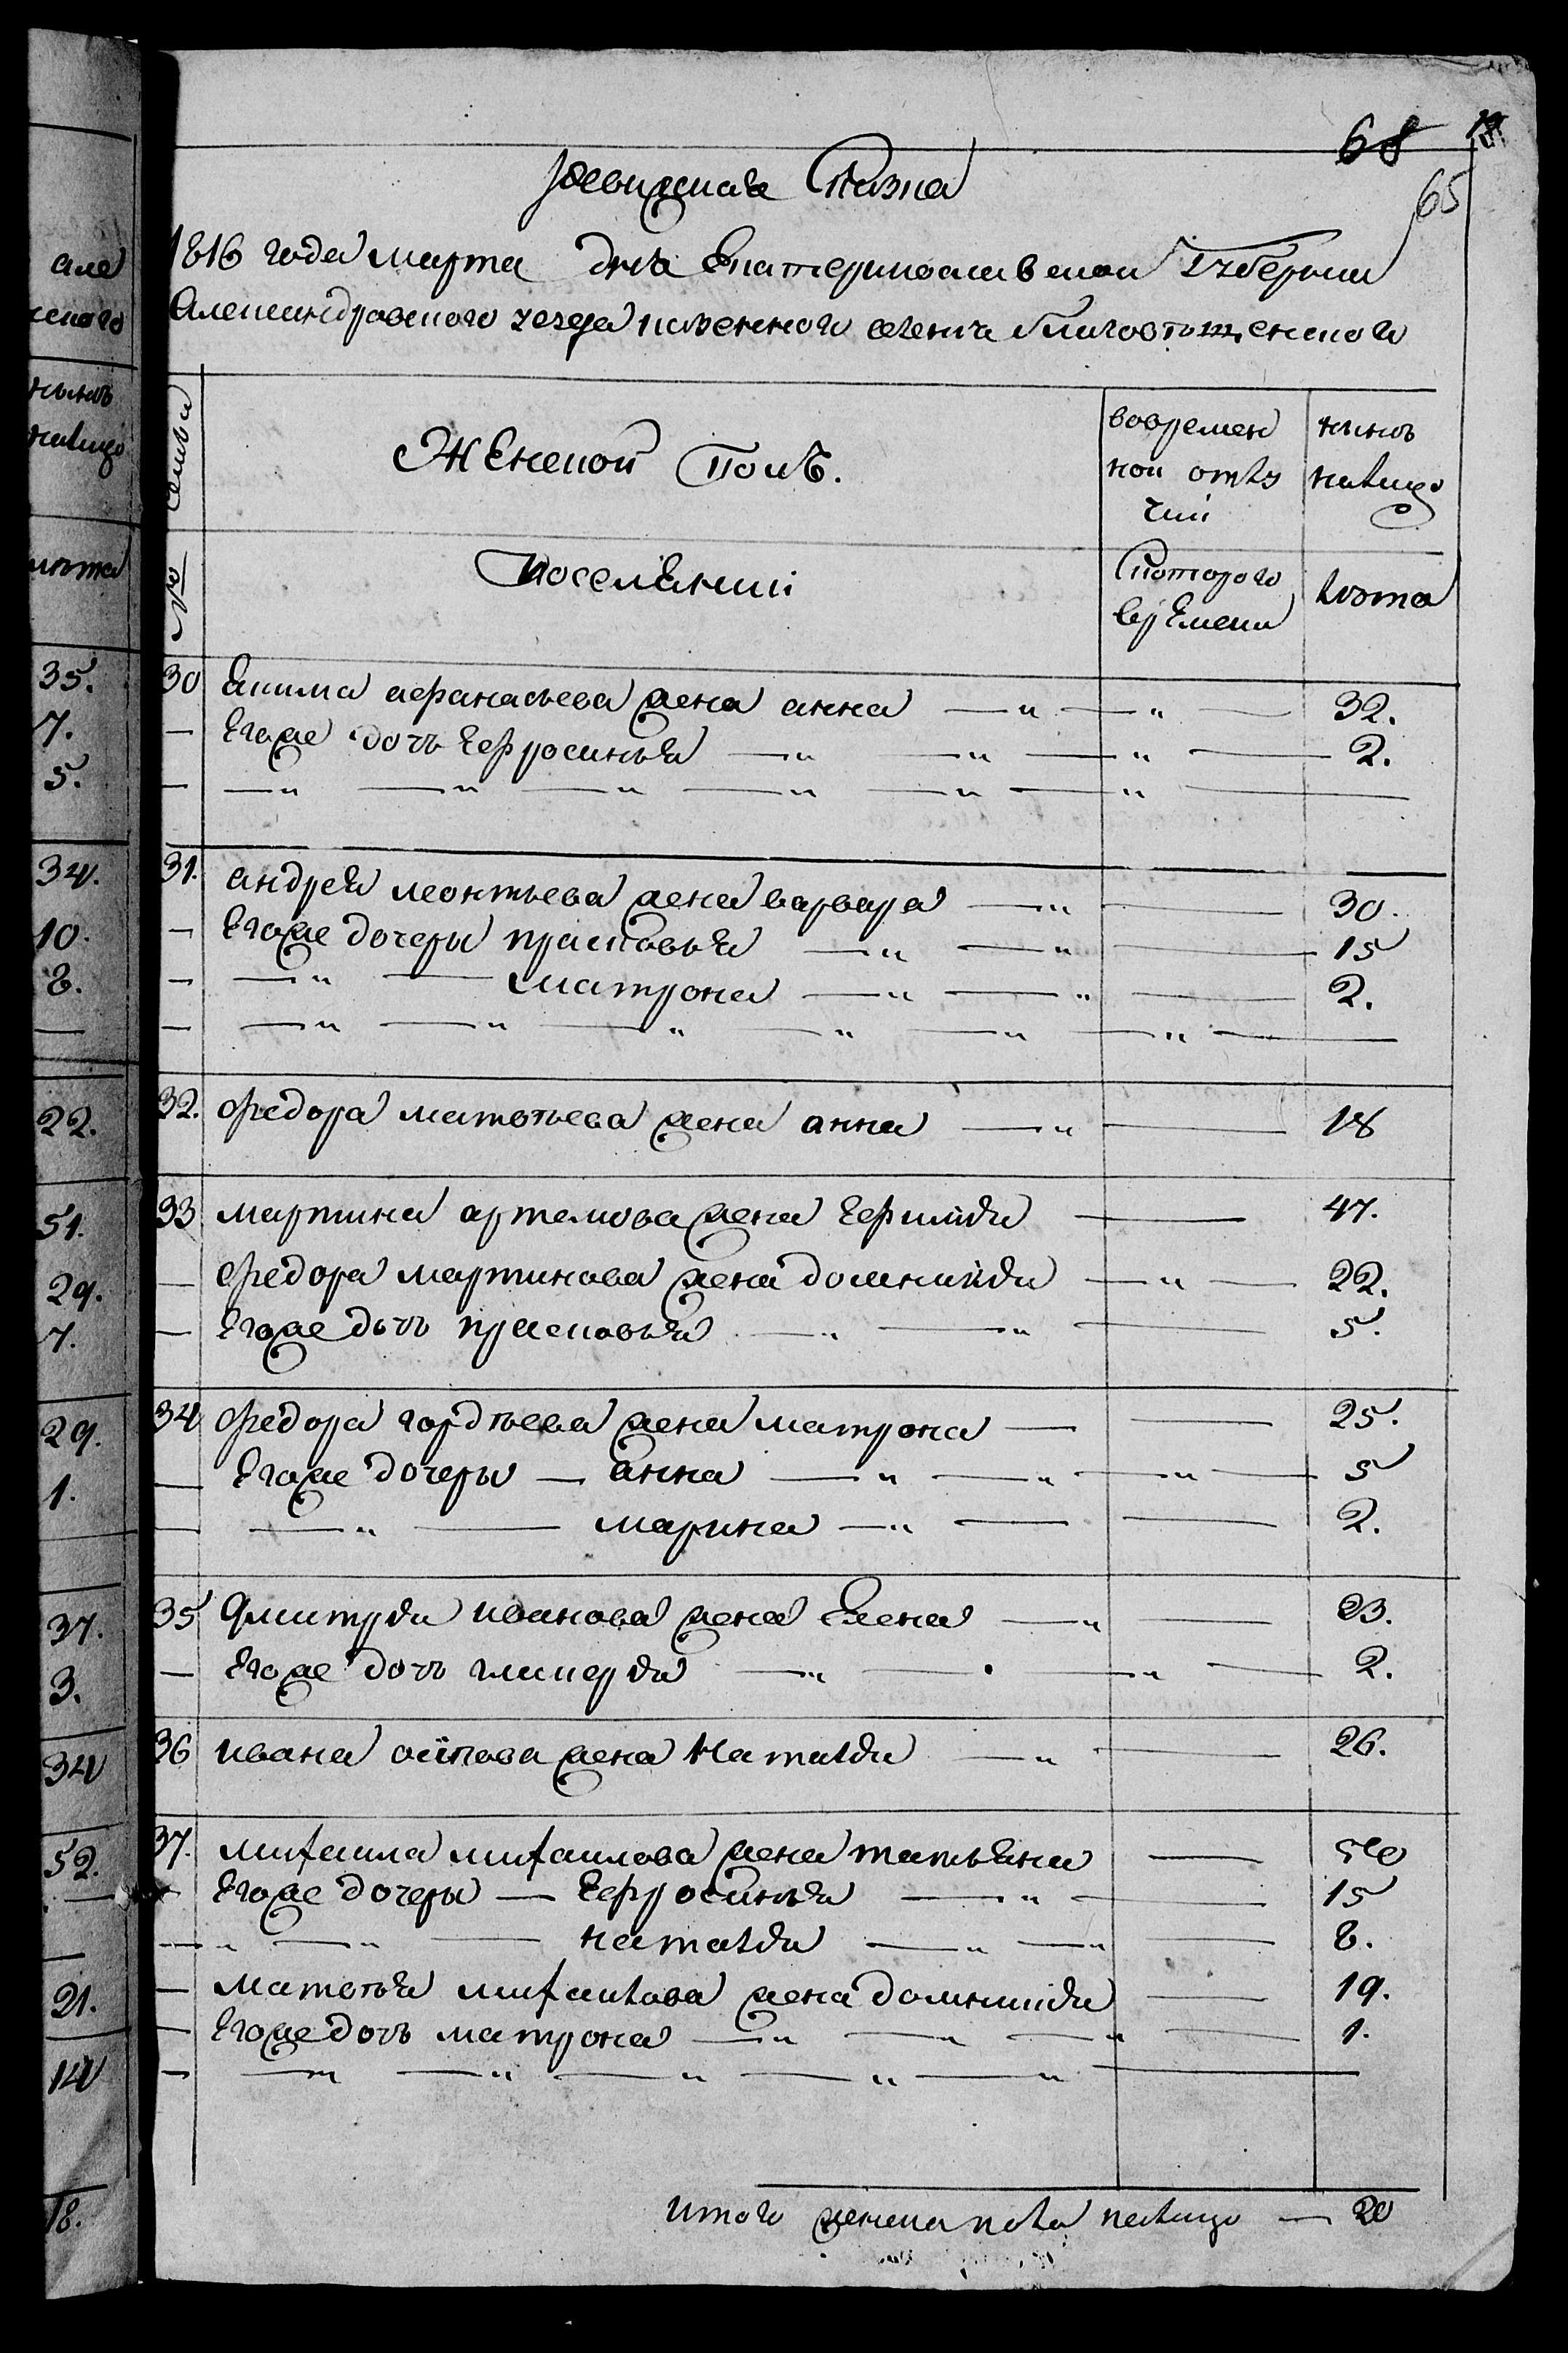 68
65
Ревижская Сказка
1816 года марта дня Екатериносласкои Губернии
Александровского уезда казенного селения благовѣщенского
Женской Полъ.
вовремен
ной отлу
чки
нынѣ
налицо
№ семьи
поселяниı
Скоторого
времени
лѣта
30 Екима афанасьева жена анна — " — " — 32.
— Егоже дочь Ефросинья — " — " — " — 2.
31. андрея леонтьева жена варвара — " — 30.
— Егоже дочеры прасковья — " — " — 15
— — " — матрона — " — " — 2.
32. федора матвѣева жена анна — " — 18
33 мартина артемова жена Ефимия — 47.
— федора мартинова жена домникия — " — 22.
— Егоже дочь прасковья — " — " — 5.
34 федора гордѣева жена матрона — — 25.
— Егоже дочеры — анна — " — " — " — 5
— — " — марина — " — — 2.
35 Дмитрия иванова жена Елена — " — 23.
— Егоже дочь гликерия — " — " — 2.
36 ивана осипова жена Наталия — " — 26.
37. михаила михаилова жена татьяна —
— Егоже дочеры — Ефросинья — " — 15
— " — " — наталия — " — " — 8.
— матвѣя михаилова жена домникия — 19.
— Егоже дочь матрона — " — " — " — 1.
итого женска пола налицо — 20
ского
нынѣ
налицо
лѣта
35.
7.
5.
34.
10.
8.
22.
51.
29.
7.
29.
1.
37.
3.
34
52.
21.
14
18.